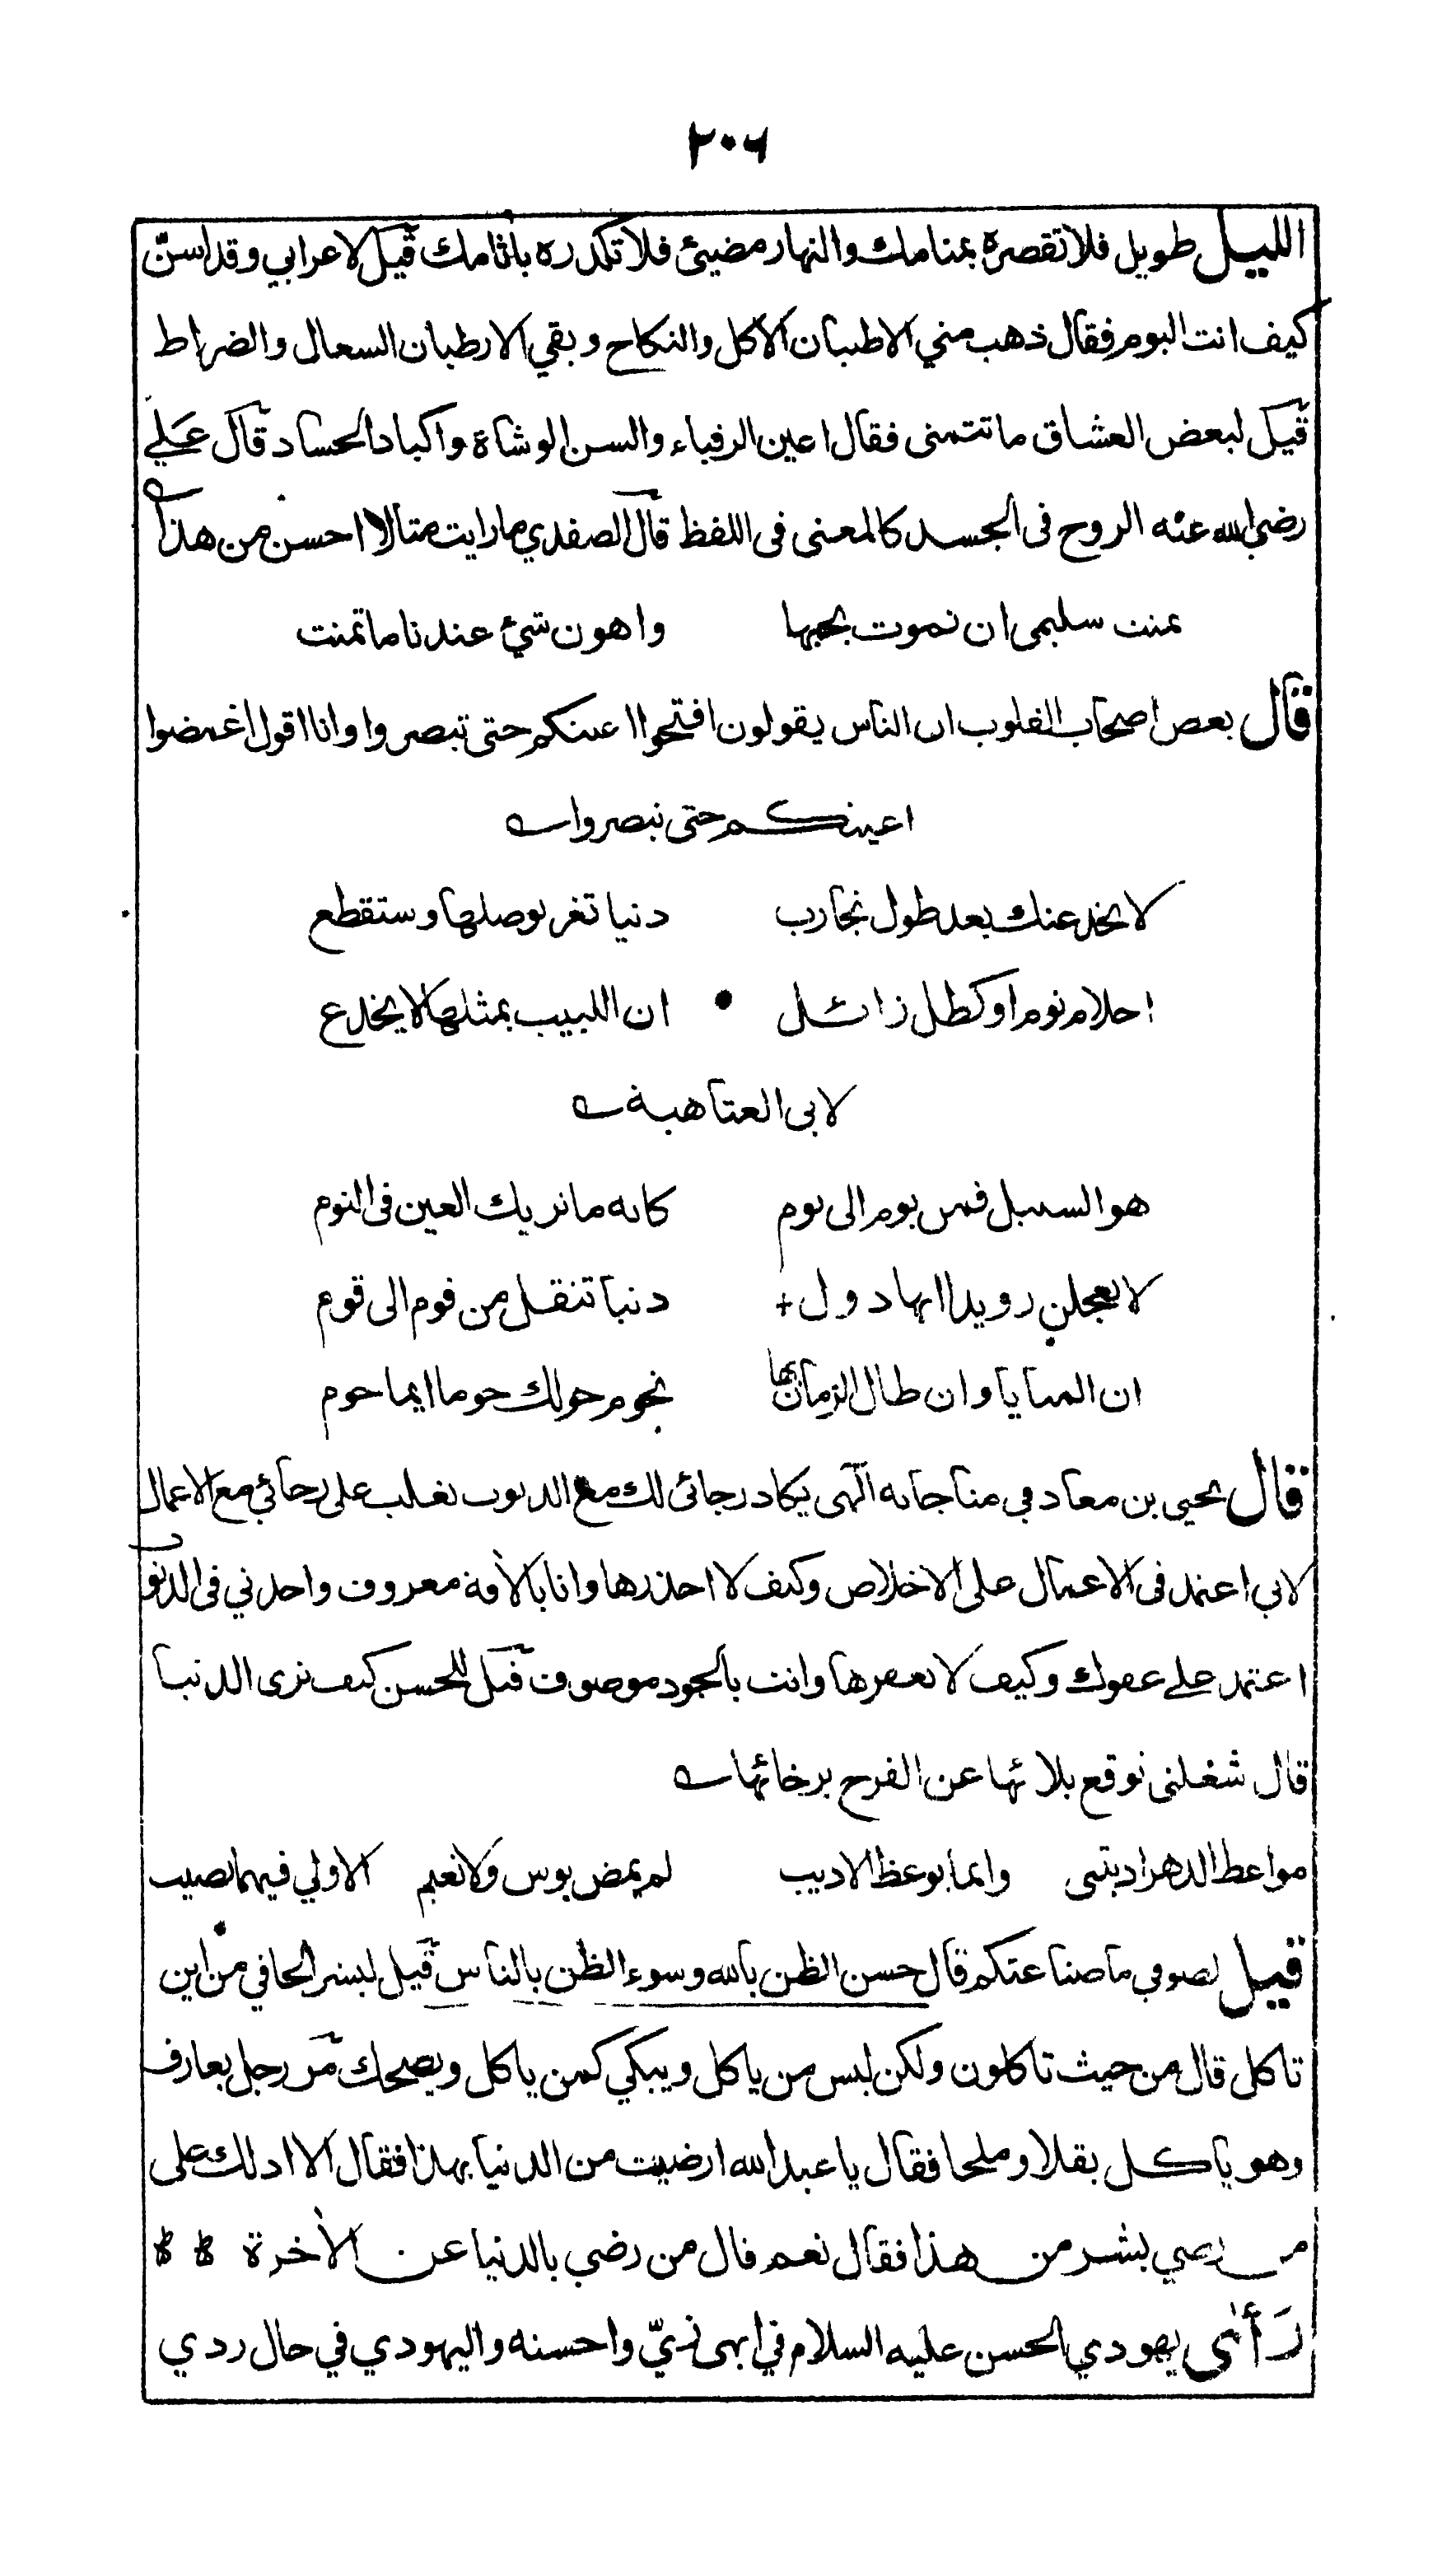 ٢٠٦
الليل طويل فلا تقصره بمنامك والنهار مضيئ فلا تكدره باثامك قيل لاعرابي وقد اسنّ
كيف انت اليوم فقال ذهب مني الاطيبان الاكل والنكاح وبقي الارطبان السعال والضراط
قيل لبعض العشاق ما تتمنى فقال اعين الرقباء والسن الوشاة واكباد الحساد قال علي
رضي الله عنه الروح فى الجسد كالمعنى فى اللفظ قال الصفدي ما رايت مثالا احسن من هذا
تمنت سليمى ان نموت بحبها واهون شئ عندنا ما تمنت
قال بعض اصحاب القلوب ان الناس يقولون افتحوا اعينكم حتى تبصروا وانا اقول اغمضوا
اعينكم حتى تبصروا
لا يخدعنك بعد طول تجارب دنيا تغر بوصلها وستقطع
احلام نوم او كظل زائل ان اللبيب بمثلها لا يخدع
لابى العتاهية
هو السبيل فمن يوم الى يوم كانه ما تريك العين فى النوم
لا تعجلن رويدا انها دول دنيا تنقل من قوم الى قوم
ان المنايا وان طال الزمان بها تحوم حولك حوما ايما حوم
قال يحيى بن معاذ في مناجاته الهى يكاد رجائى لك مع الذنوب يغلب على رجائي مع الاعمال
لاني اعتمد فى الاعمال على الاخلاص وكيف لا احذرها وانا بالافة معروف واجدني فى الذنوب
اعتمد على عفوك وكيف لا تغفرها وانت بالجود موصوف قيل للحسن كيف ترى الدنيا
قال شغلنى توقع بلائها عن الفرح برخائها
مواعظ الدهر ادبتنى وانما يوعظ الاديب لم يمض بوس ولا نعيم الا ولي فيهما نصيب
قيل لصوفي ما صناعتكم قال حسن الظن بالله وسوء الظن بالناس قيل لبشر الحافي من اين
تاكل قال من حيث تاكلون ولكن ليس من ياكل ويبكي كمن ياكل ويضحك مر رجل بعارف
وهو ياكل بقلا وملحا فقال يا عبد الله ارضيت من الدنيا بهذا فقال الا ادلك على
من رضي بشر من هذا فقال نعم قال من رضي بالدنيا عن الاخرة
رأى يهودي الحسن عليه السلام في ابهى زيّ واحسنه واليهودي في حال ردي